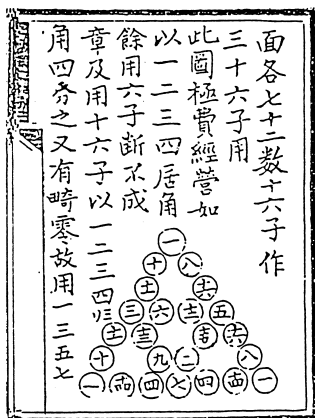 面各七十二数十六子作
三十六子用
此圖極費經營如
以一二三四居角
餘用六子斷不成
章及用十六子以一二三四归
角四旁之又有畸零故用一三五七
一
十 八
三 六 五
十 九 二 八
一 四 七 四 一